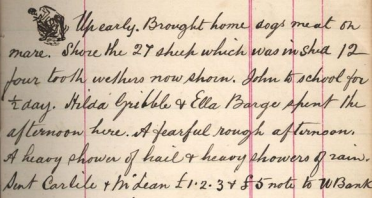 Up early. Brought home dogs meat on
mare. Shore the 27 sheep which was in shed 12
four tooth wethers now shorn. John to school for
½ day. Hilda Gribble & Ella Barge spent the
afternoon here. A fearful rough afternoon.
A heavy shower of hail & heavy showers of rain.
Sent Carlile & McLean £1.2.3 & £5 note to W Bank